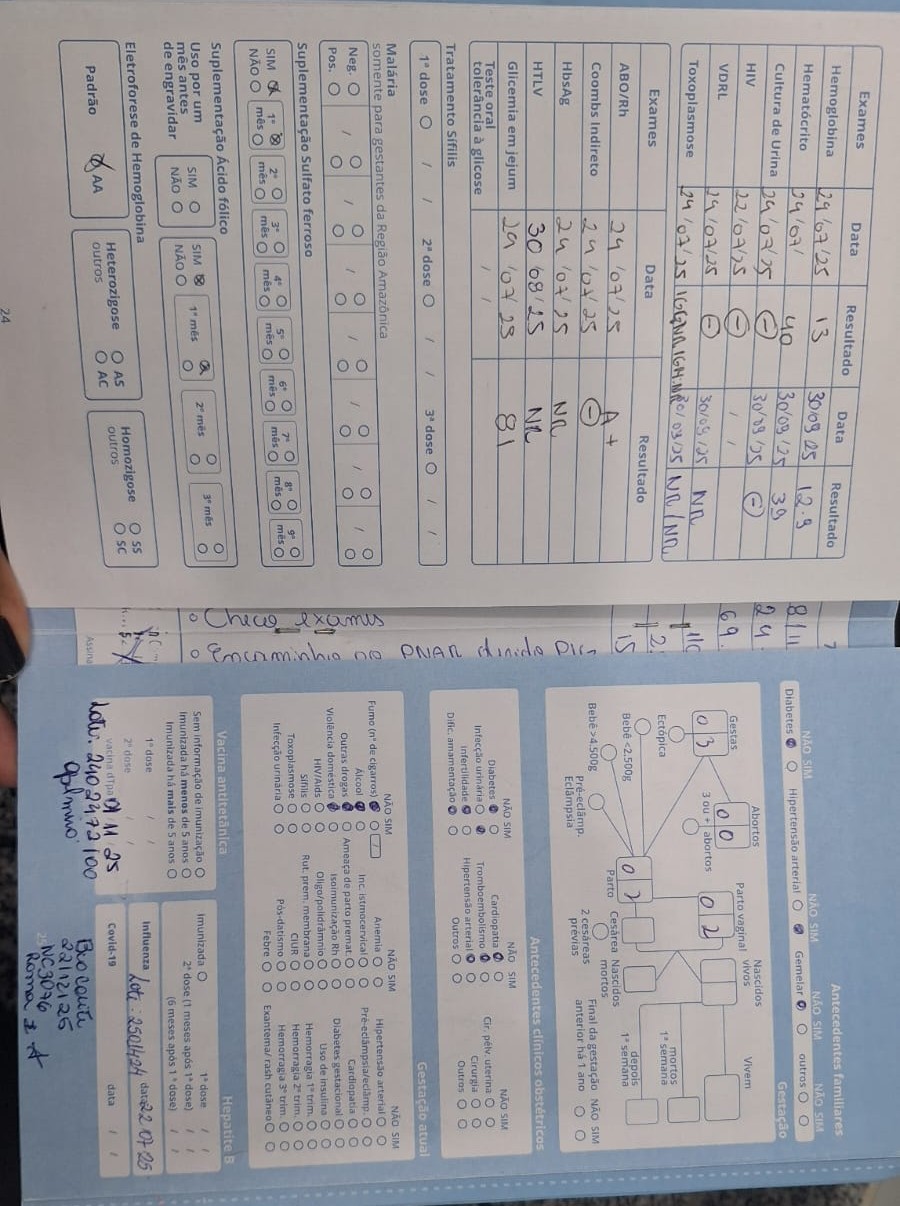 Exames Data Resultado Data Resultado
Hemoglobina 24/07/25 13 30/09/25 12.9
Hematócrito 24/07/ 40 30/09/25 39
Cultura de Urina 24/07/25 (-) 30/09/25 (-)
HIV 22/07/25 (-) / /
VDRL 24/07/25 (-) 30/09/25 NR
Toxoplasmose 24/07/25 IGG:NR IGM:NR 30/09/25 NR/NR
Exames Data Resultado
ABO/Rh 24/07/25 A+
Coombs Indireto 24/07/25 (-)
HbsAg 24/07/25 NR
HTLV 30/08/25 NR
Glicemia em jejum 24/07/25 81
Teste oral
tolerância à glicose / /
Tratamento Sífilis
1ª dose / / 2ª dose / / 3ª dose / /
Malária
somente para gestantes da Região Amazônica
Neg. / / / / / /
Pos.
Suplementação Sulfato ferroso
SIM 1º mês 2º mês 3º mês 4º mês 5º mês 6º mês 7º mês 8º mês 9º mês
NÃO
Suplementação Ácido fólico
Uso por um
mês antes
de engravidar
SIM
NÃO
SIM
NÃO
1º mês 2º mês 3º mês
Eletroforese de Hemoglobina
Padrão AA
Heterozigose AS
outros AC
Homozigose SS
outros SC
24
8/11
24
69.
Checo exames
Encaminho ao PNAR devido
Assina
Antecedentes familiares
NÃO SIM NÃO SIM NÃO SIM NÃO SIM
Diabetes Hipertensão arterial Gemelar outros
Gestação
Gestas 03
Abortos 00
Parto vaginal 02
Nascidos
vivos
Vivem
Ectópica
3 ou + abortos
mortos
1ª semana
Bebê <2.500g
Parto 02
Cesárea
Nascidos
mortos
depois
1ª semana
Bebê >4.500g
Pré-eclâmp.
Eclâmpsia
2 cesáreas
prévias
Final da gestação
anterior há 1 ano
NÃO SIM
Antecedentes clínicos obstétricos
NÃO SIM NÃO SIM NÃO SIM
Diabetes Cardiopatia Cir. pélv. uterina
Infecção urinária Tromboembolismo Cirurgia
Infertilidade Hipertensão arterial Outros
Dific. amamentação Outros
Gestação atual
NÃO SIM NÃO SIM NÃO SIM
Fumo (nº de cigarros) Anemia Hipertensão arterial
Álcool Inc. istmocervical Pré-eclâmpsia/eclâmp.
Outras drogas Ameaça de parto premat. Cardiopatia
Violência doméstica Isoimunização Rh Diabetes gestacional
HIV/Aids Oligo/polidrâmnio Uso de insulina
Sífilis Rut. prem. membrana Hemorragia 1º trim.
Toxoplasmose CIUR Hemorragia 2º trim.
Infecção urinária Pós-datismo Hemorragia 3º trim.
Febre Exantema/ rash cutâneo
Vacina antitetânica
Sem informação de imunização
Imunizada há menos de 5 anos
Imunizada há mais de 5 anos
1ª dose / /
2ª dose / /
vacina dTpa 01 11 25
Lote: 240247 2100
Hepatite B
Imunizada 1ª dose / /
2ª dose (1 meses após 1ª dose) / /
(6 meses após 1ª dose) / /
Influenza Lote: 250149 data 22 07 25
Covid-19 data /
22/12/25
NC3076